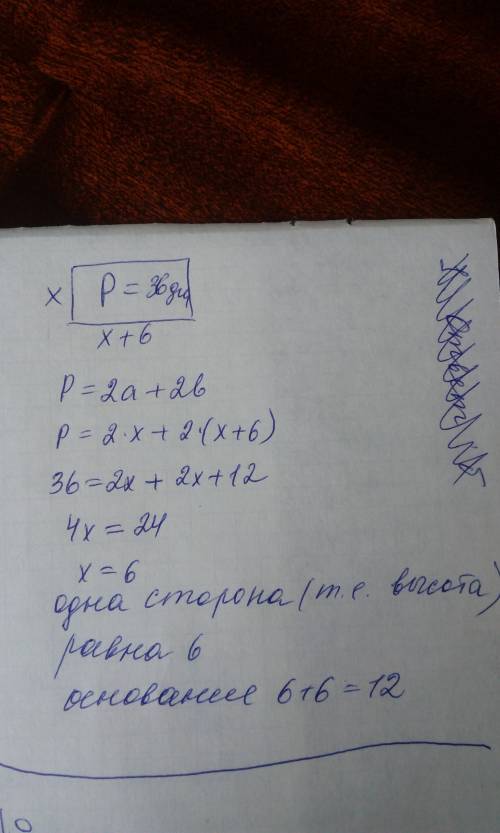 x P = 36дм
x + 6
P = 2a + 2b
P = 2·x + 2·(x+6)
36 = 2x + 2x + 12
4x = 24
x = 6
одна сторона (т.е. высота)
равна 6
основание 6+6=12